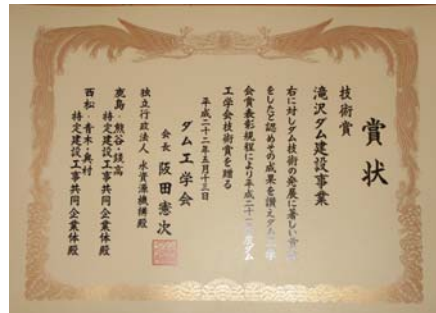 賞状
技術賞
滝沢ダム建設事業
右に対しダム技術の発展に著しい貢献
をしたと認めその成果を讃えダム工学
会賞表彰規程により平成二十一年度ダム
工学会技術賞を贈る
平成二十二年五月十三日
ダム工学会
会長 阪田憲次
独立行政法人 水資源機構殿
鹿島・熊谷・銭高
特定建設工事共同企業体殿
西松・青木・奥村
特定建設工事共同企業体殿